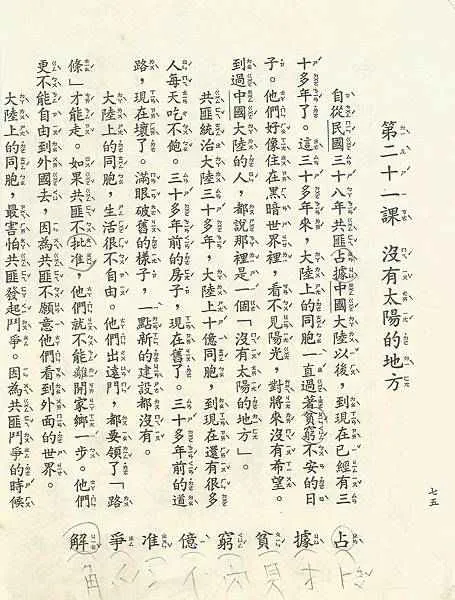 第二十一課　沒有太陽的地方
自從民國三十八年共匪占據中國大陸以後，到現在已經有三
十多年了。這三十多年來，大陸上的同胞一直過著貧窮不安的日
子。他們好像住在黑暗世界裡，看不見陽光，對將來沒有希望。
到過中國大陸的人，都說那裡是一個「沒有太陽的地方」。
共匪統治大陸三十多年，大陸上十億同胞，到現在還有很多
人每天吃不飽。三十多年前的房子，現在舊了。三十多年前的道
路，現在壞了。滿眼破舊的樣子，一點新的建設都沒有。
大陸上的同胞，生活很不自由。他們出遠門，都要領了「路
條」才能走。如果共匪不批准，他們就不能離開家鄉一步。他們
更不能自由到外國去，因為共匪不願意他們看到外面的世界。
大陸上的同胞，最害怕共匪發起鬥爭。因為共匪鬥爭的時候
七五
占據貧窮億准爭解